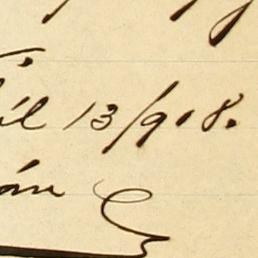 il 13/908.
án